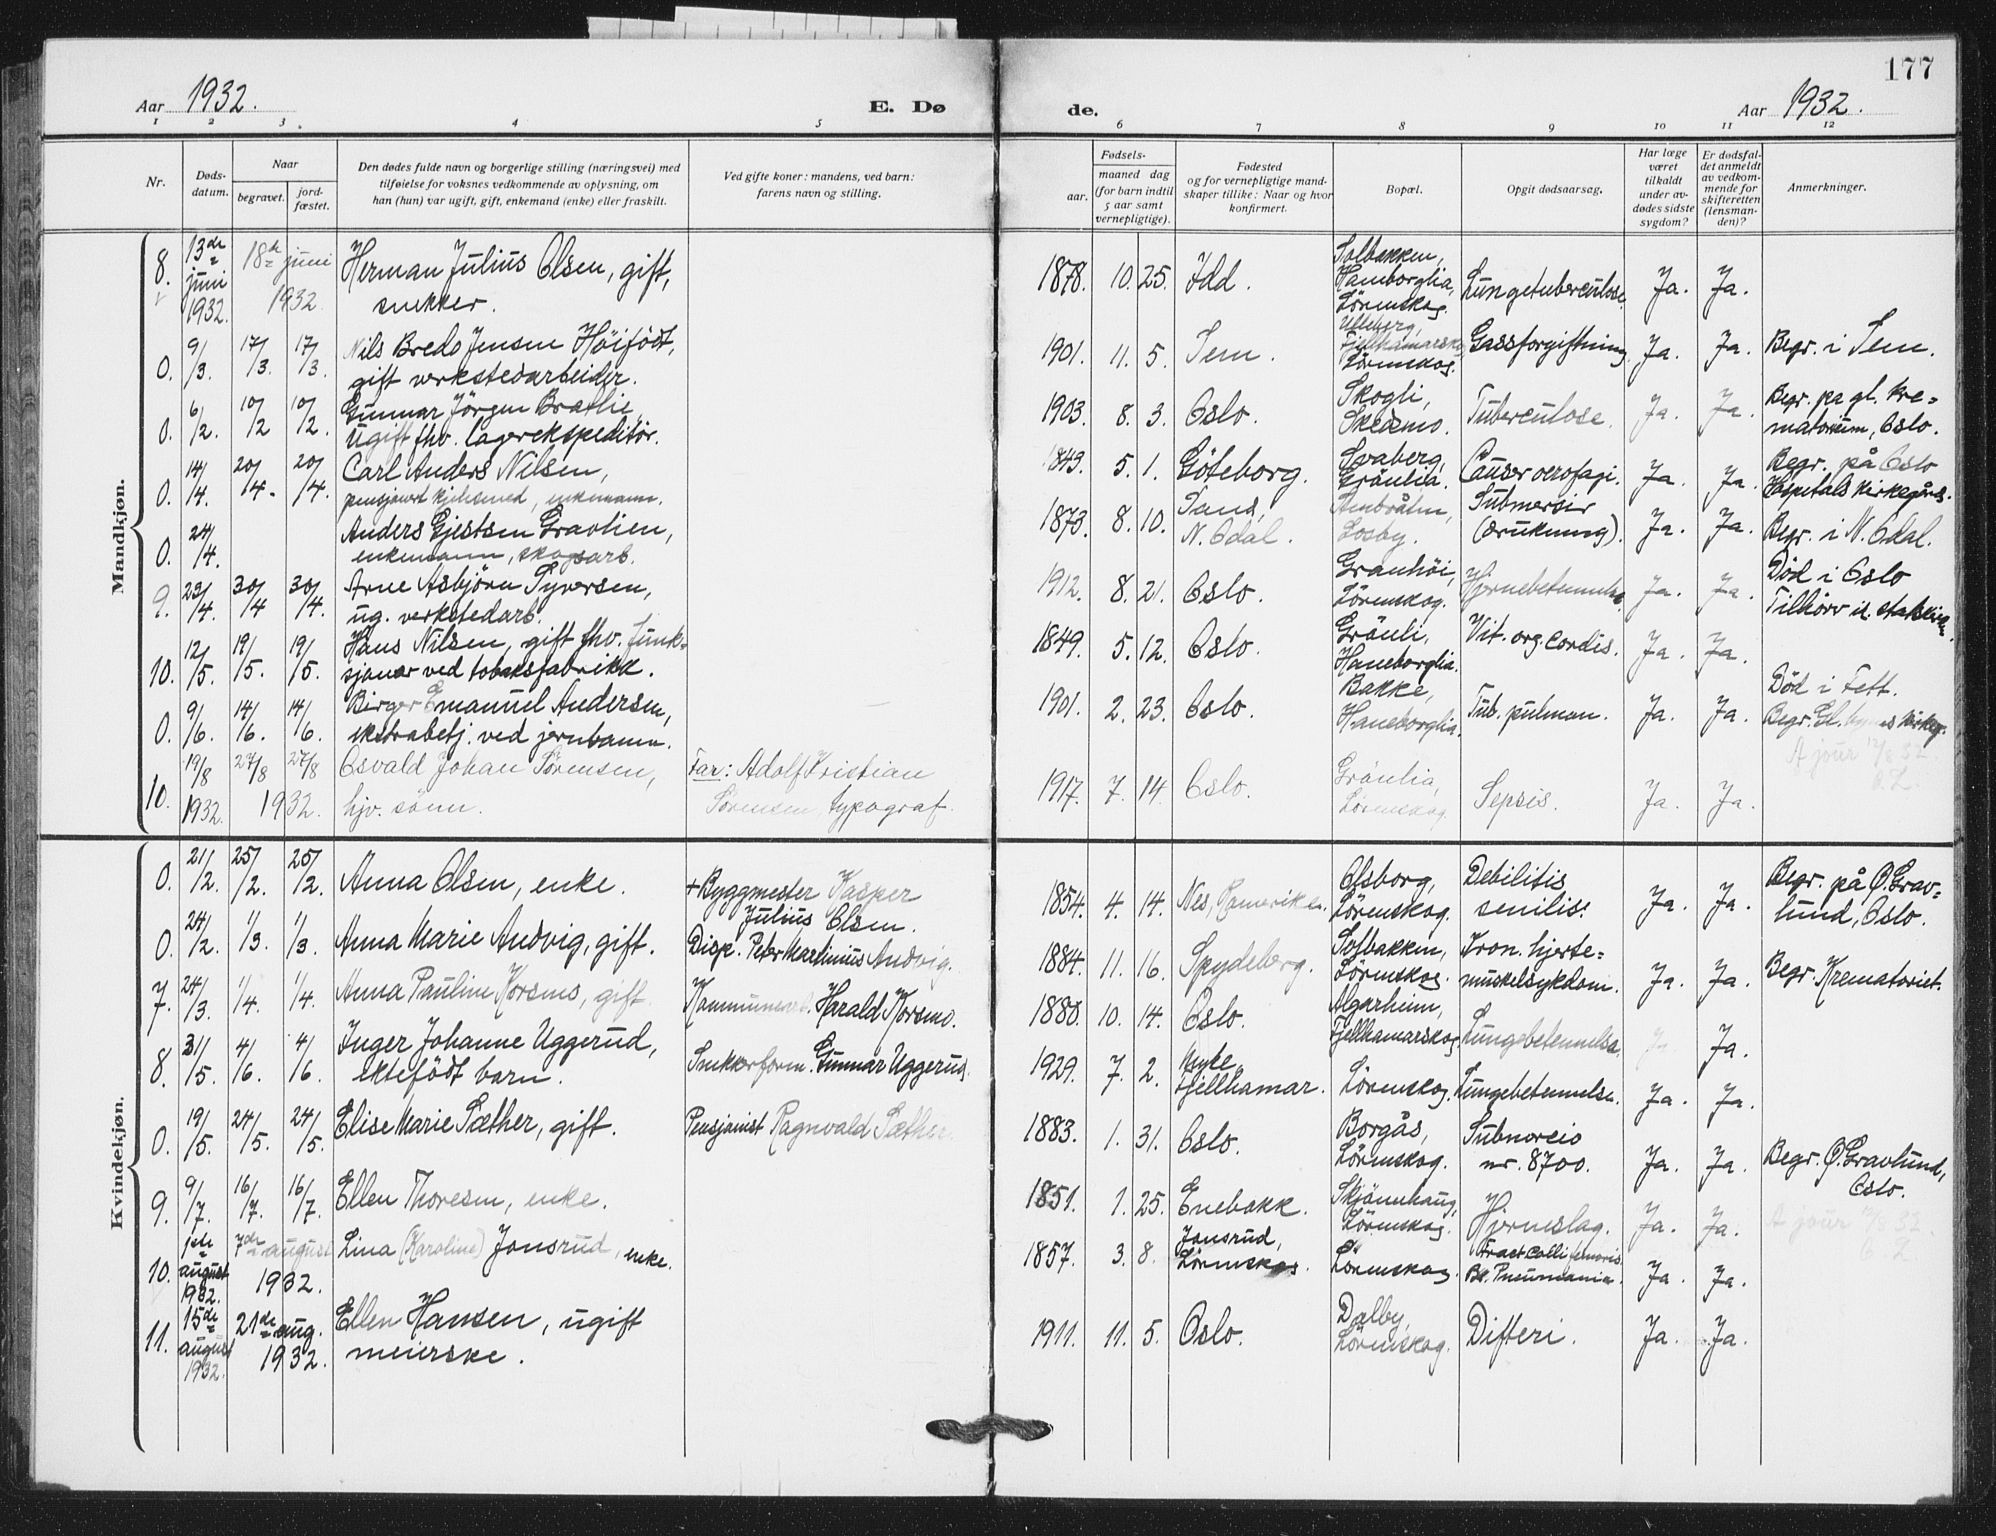 177
Aar 1932. E. Dø de. Aar 1932.
1 2 3 4 5 6 7 8 9 10 11 12
Nr.
Døds-
datum.
Naar
begravet.
jord-
fæstet.
Den dødes fulde navn og borgerlige stilling (næringsvei) med
tilføielse for voksnes vedkommende av oplysning, om
han (hun) var ugift, gift, enkemand (enke) eller fraskilt.
Ved gifte koner: mandens, ved barn:
farens navn og stilling.
Fødsels-
aar.
maaned dag
(for barn indtil
5 aar samt
vernepligtige).
Fødested
og for vernepligtige mand-
skaper tillike: Naar og hvor
konfirmert.
Bopæl.
Opgit dødsaarsag.
Har læge
været
tilkaldt
under av-
dødes sidste
sygdom?
Er dødsfal-
det anmeldt
av vedkom-
mende for
skifteretten
(lensman-
den)?
Anmerkninger.
Mandkjøn.
8. 13de juni 1932. 18de juni 1932. Herman Julius Olsen, gift,
snekker.
1878. 10. 25. Idd. Solbakken, Hamborglia, Lörenskog. Lungetuberculose. Ja. Ja.
0. 9/3. 17/3. 17/3. Nils Bredo Jensen Höifödt,
gift verkstedarbeider.
1901. 11. 5. Sem. Fjellhamarskog, Lörenskog. Gassforgiftning Ja. Ja. Begr. i Sem.
0. 6/2. 10/2 10/2. Gunnar Jörgen Bratlie
Ugift fhv. lagerekspeditör.
1903. 8. 3. Oslo. Skogli, Skedsmo. Tuberculose. Ja. Ja. Begr. pa gl. kre-
matorium, Oslo.
0. 14/4. 20/4. 20/4. Carl Anders Nilsen,
pensjonert kjelesmed, enkemann.
1849. 5. 1. Göteborg. Svaberg, Grönlia. Cancer oesofagi. Ja. Ja. Begr. på Oslo
Hospitals kirkegård.
0. 24/4. Anders Gjestsen Gravlien,
enkemann, skogsarb.
1873. 8. 10. Sand, N. Odal. Ambråten, Losby. Submersio
(drukning). Ja. Ja. Begr. i N. Odal.
9. 23/4. 30/4 30/4. Arne Asbjörn Syversen,
ug. verkstedarb.
1912. 8. 21. Oslo. Granhöi, Lörenskog. Hjernebetennelse Ja. Ja. Död i Oslo
Tilhörer statskirken.
10. 12/5. 19/5. 19/5. Hans Nilsen, gift fhv. funk-
sjonær ved tobaksfabrikk.
1849. 5. 12. Oslo. Grönli, Haneborglia. Vit. org. cordis. Ja. Ja.
0. 9/6. 14/6. 14/6. Birger Emanuel Andersen,
ekstrabetj. ved jernbanen.
1901. 2. 23. Oslo. Bakke, Haneborglia. Tub. pulmon. Ja. Ja. Död i Fett.
Begr. Gl. kirkeg.
A jour 12/8 32.
10. 19/8 1932. 27/8 27/8 1932. Osvald Johan Sörensen,
hjv. sönn.
Far: Adolf Kristian
Sörensen, typograf.
1917. 7. 14. Oslo. Grönlia, Lörenskog. Sepsis. Ja. Ja.
Kvindekjøn.
0. 21/2. 25/2. 25/2. Anna Olsen, enke. + Byggmester Kasper
Julius Olsen.
1854. 4. 14. Nes, Romeriken. Olsborg, Lörenskog. Debilitis
senilis. Ja. Ja. Begr. på Ø. Grav-
lund, Oslo.
0. 24/2. 1/3. 1/3. Anna Marie Andvig, gift. Disp. Peter Martinius Andvig.
1884. 11. 16. Spydeberg. Solbakken, Lörenskog. Kron. hjerte-
muskelsykdom. Ja. Ja. Begr. Krematoriet.
7. 24/3. 1/4. 1/4. Anna Pauline Korsmo, gift. Kommunearb. Harald Korsmo.
1880. 10. 14. Oslo. Algarheim, Fjellhamarskog. Lungebetennelse. Ja. Ja.
8. 31/5. 4/6. 4/6. Inger Johanne Uggerud,
ektefödt barn. Snekkerform. Gunnar Uggerud.
1929. 7. 2. Fjellhamar. Lörenskog. Lungebetennelse. Ja. Ja.
0. 19/5. 24/5. 24/5. Elise Marie Sæther, gift. Pensjonist Ragnvald Sæther.
1883. 1. 31. Oslo. Borgås, Lörenskog. nr. 8700. Ja. Ja. Begr. Ø. Gravlund,
Oslo.
9. 9/7. 16/7. 16/7. Ellen Thoresen, enke.
1851. 1. 25. Enebakk. Skjönnhaug, Lörenskog. Hjerneslag. Ja. Ja. A jour 12/8 32
10. 1ste august 1932. 7de august 1932. Lina (Karoline) Jonsrud, enke.
1857. 3. 8. Jonsrud, Lörenskog. Lörenskog. Fract colli femoris.
Br. Pneumonia. Ja. Ja.
11. 15de august 1932. 21de aug. 1932. Ellen Hansen, ugift
meierske.
1911. 11. 5. Oslo. Dalby, Lörenskog. Difteri. Ja. Ja.